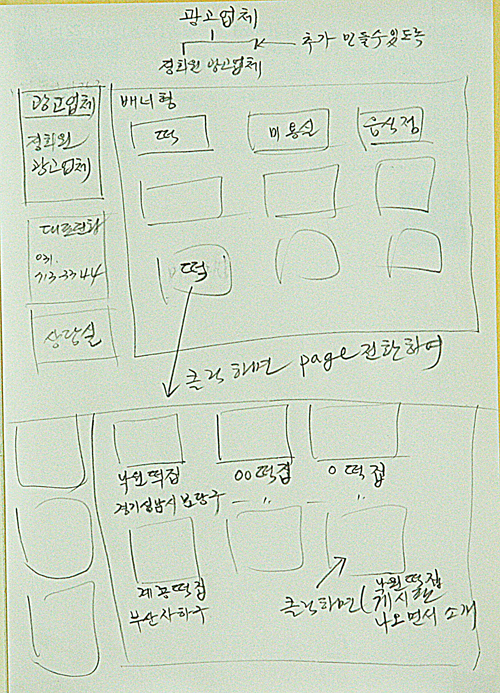 광고업체
정회원 광고업체
추가 만들수있도록
광고업체
정회원
광고업체
대표전화
031.
713-3344
상담실
배너형
떡
미용실
음식점
떡
클릭하면 page 전환하여
낙원떡집
경기성남시 분당구
00떡집
0 떡집
"
"
제공떡집
부산사하구
클릭하면
낙원떡집
게시글
나오면서 소개